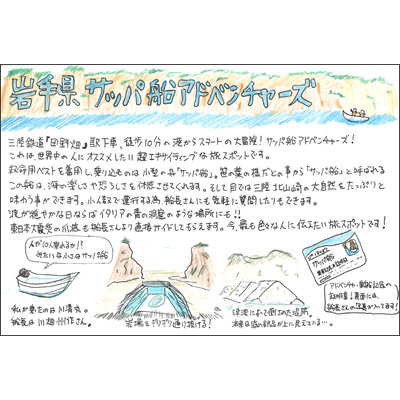 岩手県 サッパ船アドベンチャーズ
三陸鉄道『田野畑』駅下車、徒歩10分の港からスタートの大冒険!サッパ船アドベンチャーズ!
これは、世界中の人にオススメしたい超エキサイティングな旅スポットです。
救命用ベストを着用し乗り込むのは小型の舟「サッパ船」。笹の葉の様だとの事から「サッパ船」と呼ばれる
この船は、海の楽しさや恐ろしさを体感させてくれます。そして目では三陸北山崎の大自然をたっぷりと
味わう事ができます。小人数で運行する為、船長さんにも気軽に質問したりもできます。
波が穏やかな日ならばイタリアの青の洞窟のような場所にも!!
東日本大震災の爪痕も船長さんより直接ガイドしてもらえます。今、最も色々な人に伝えたい旅スポットです!
人が10人乗れるか!?
みたいな小さなサッパ船
私が乗ったのは川清丸。
船長は川畑
岩場をギリギリ通り抜ける!
津波によって倒れた堤防。
本来は底の部分が上に見えている…。
サッパ船
アドベンチャー乗船記念の
証明書!裏面には、
船長さんの写真が入ってます!